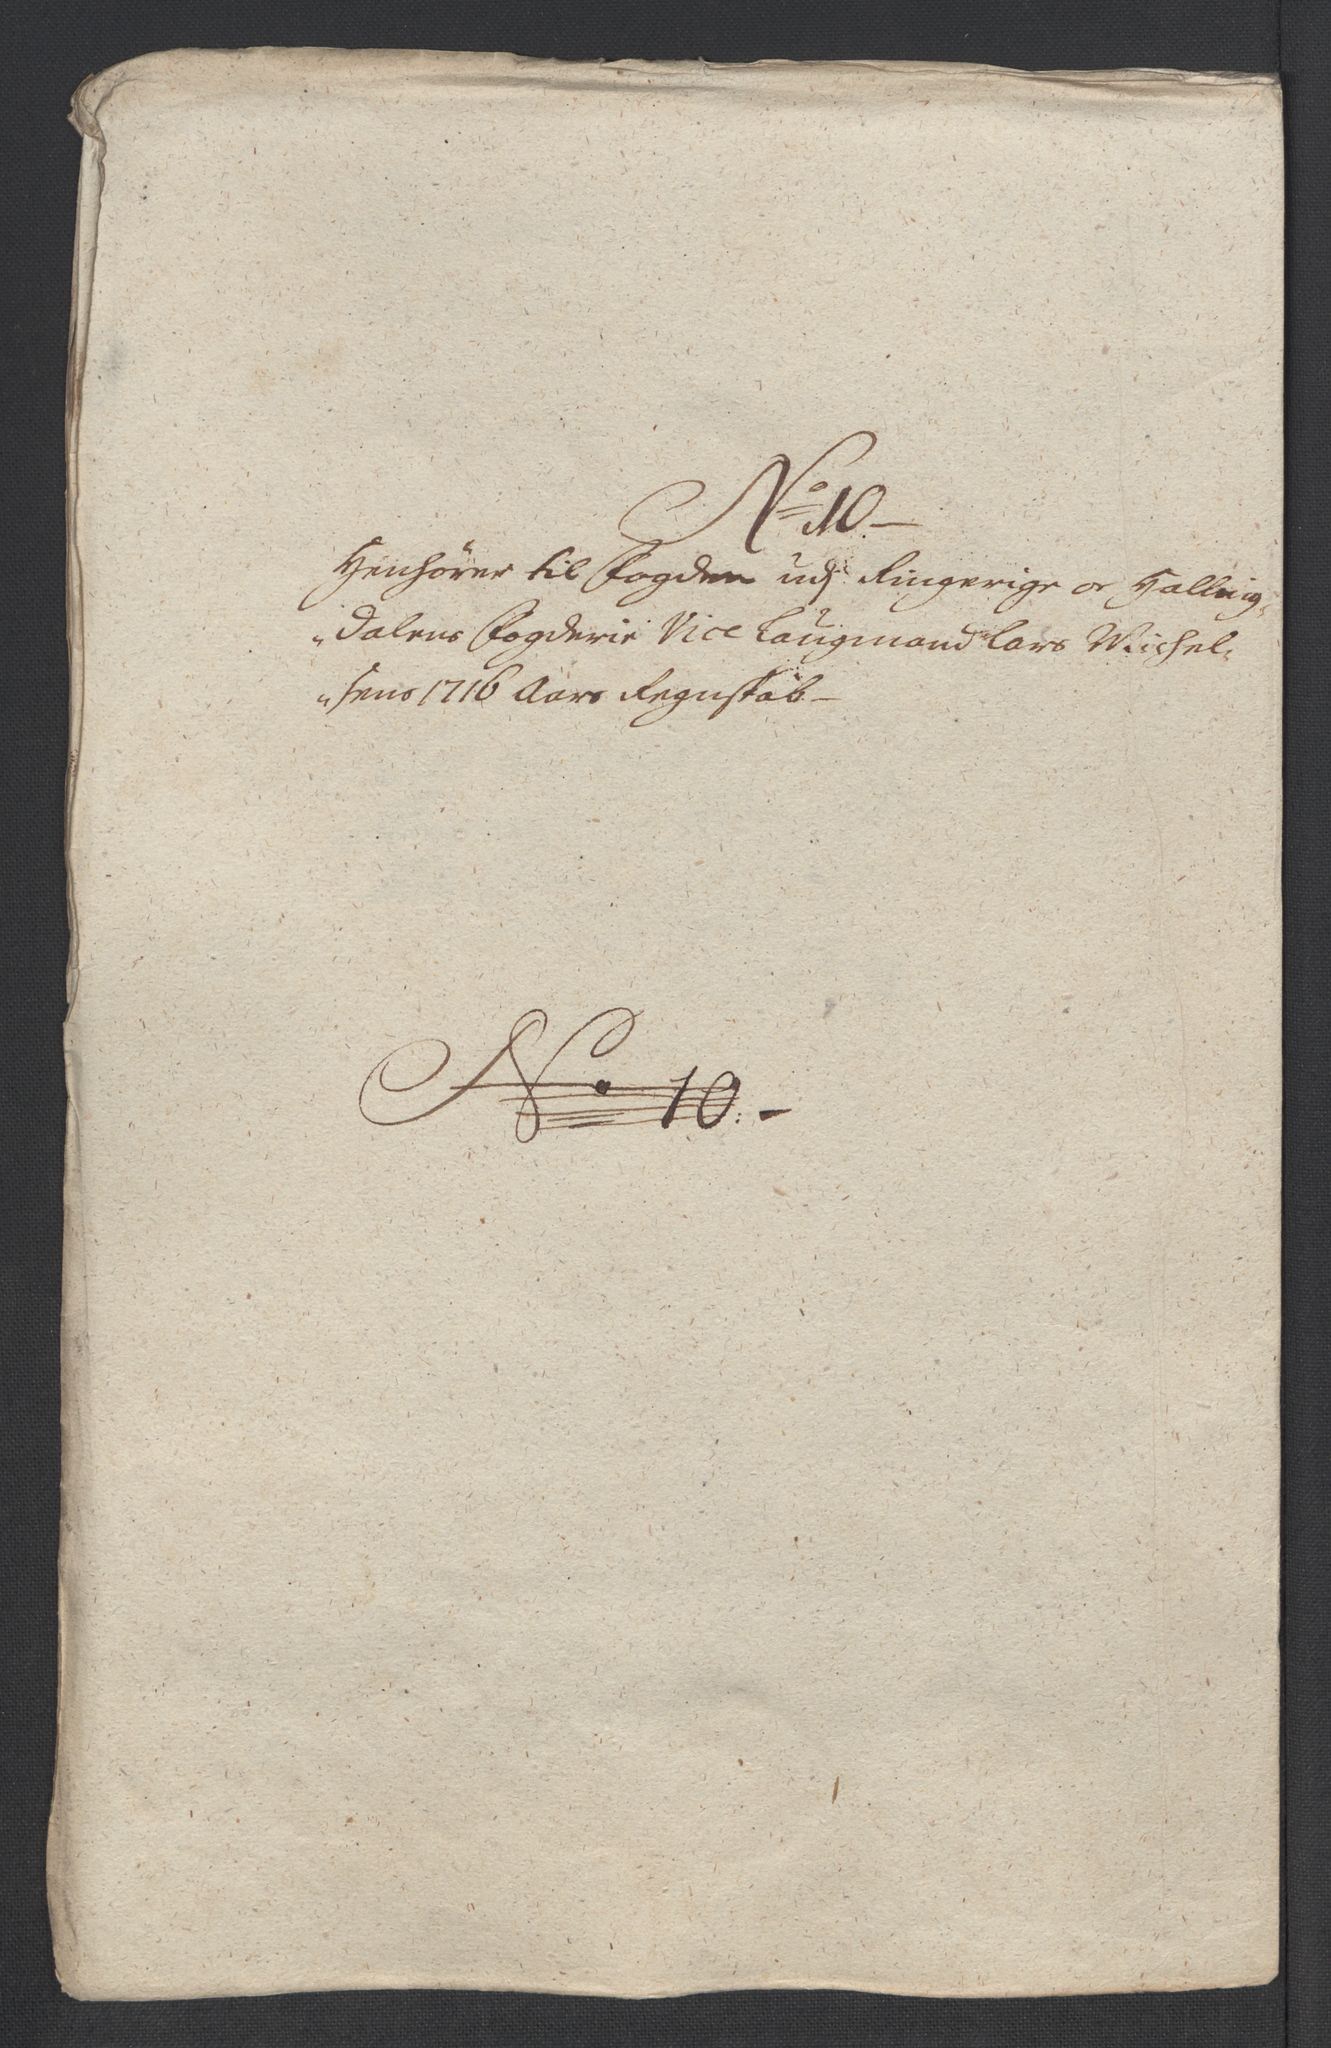 No 10.
Henhører til Fogden udj Ringerige oc Halling,
„dalens Fogderie Vice Laugmand Lars Michel,
„sens 1716 Aars Regnskab
No 10.